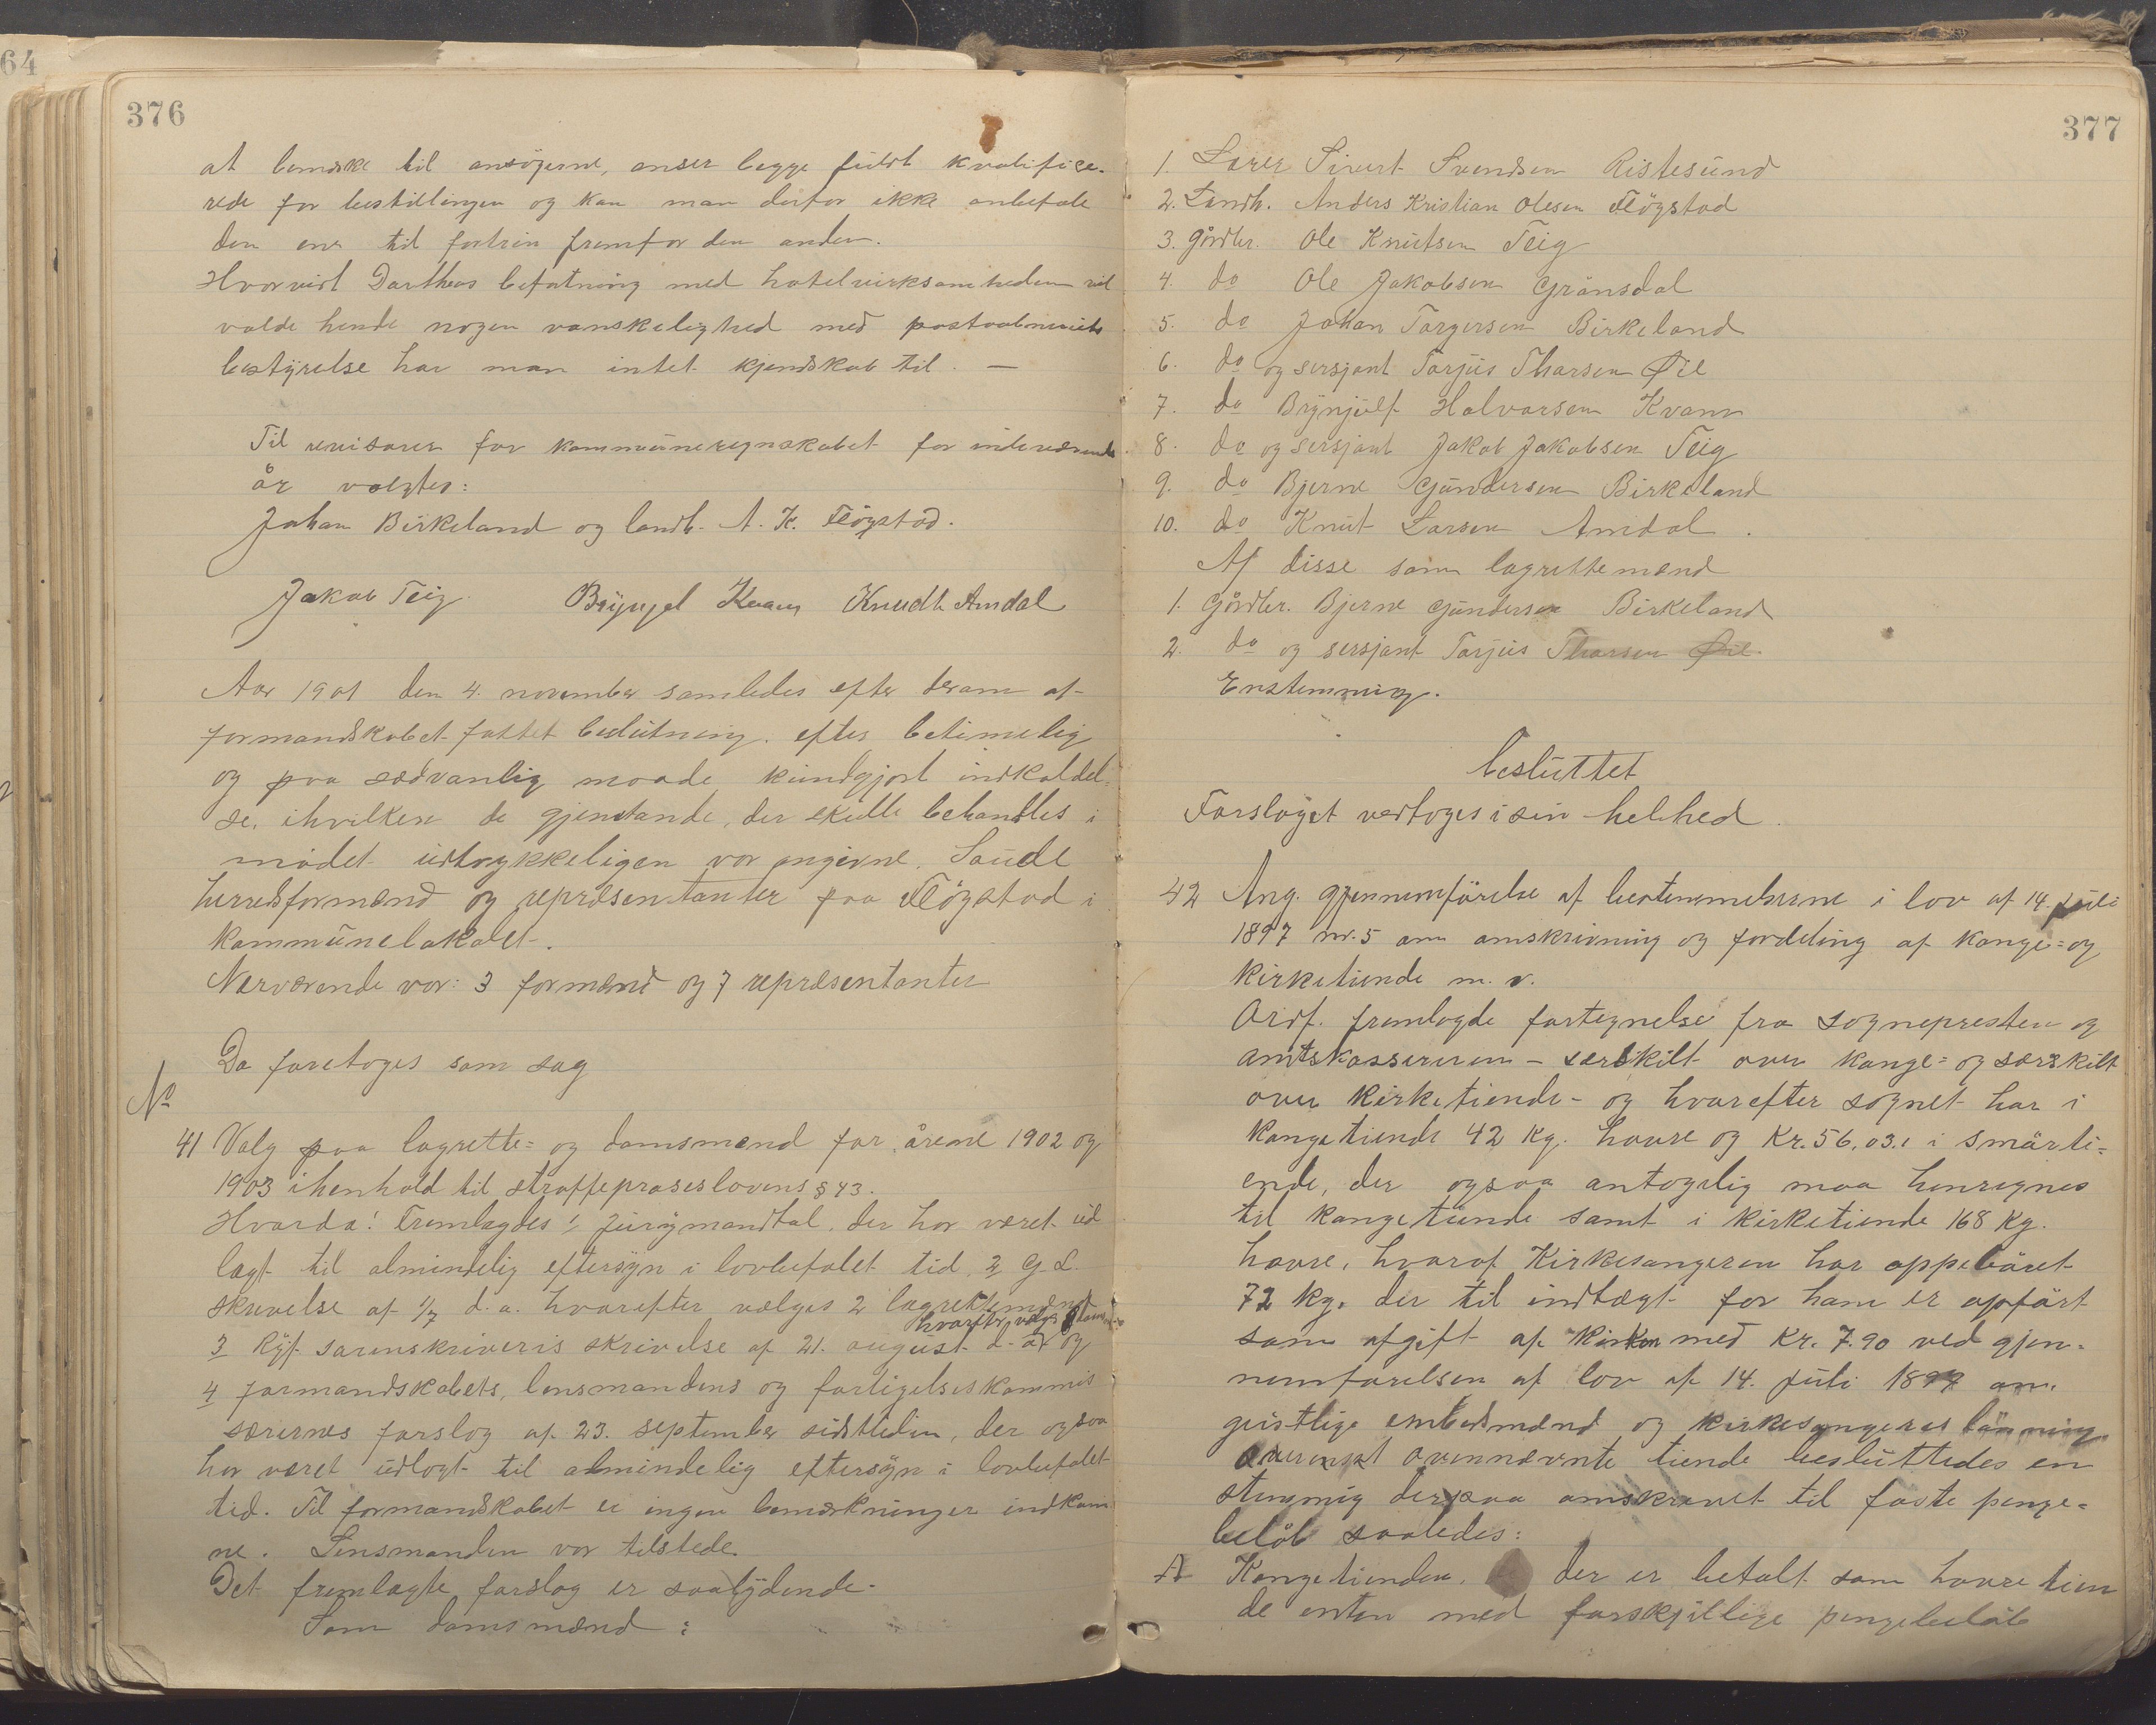 64
376
at bemærke til ansøgerne, anser begge fuldt kvalifice-
rede for bestillingen og kan man derfor ikke anbefale
den ene til fortrin fremfor den anden.
Hvorvidt Dortheas befatning med hotelvirksomheden vil
volde hende nogen vanskelighed med postaabneriets
bestyrelse har man intet kjendskab til. —
Til revisorer for kommuneregnskabet for indeværende
år valgtes:
Johan Birkeland og landh. A. K. Fløgstad.
Jakob Teig Knudt Amdal
Aar 1901 den 4. november samledes efter derom af
formandskabet fattet beslutning, efter betimelig
og paa sædvanlig maade kundgjort indkaldel-
se, ihvilken de gjenstande, der skulle behandles i
mødet udtrykkeligen var angivne. Saude
herredsformænd og repræsentanter paa Fløgstad i
kommunelokalet.
Nærværende var: 3 formænd og 7 repræsentanter
Da foretoges som sag
No
41 Valg paa lagrette= og domsmænd for årene 1902 og
1903 ihenhold til straffeproseslovens § 43.
Hvorda! Fremlagdes 1, Jurymandtal, der har været ud
lagt til almindelig eftersyn i lovbefalet tid, 2 G. L.
skrivelse af 1/7 d. a. hvorefter vælges 2 lagrettemænd
hvorefter vælges
3 Ryf. sorenskriveris skrivelse af 21. august d. a. og
4 formandskabets, lensmandens og forligelseskommis
særernes forslag af 23. september sidstleden, der ogsaa
har været udlagt til almindelig eftersyn i lovbefalet
tid. Til formandskabet er ingen bemærkninger indkom
ne. Lensmanden var tilstede
Det fremlagte forslag er saalydende.
Som domsmænd:
377
1. Lærer Sivert Svendsen Ristesund
2. Landh. Anders Kristian Olesen Fløgstad
3. Gårdbr. Ole Knutsen Teig
4. do Ole Jakobsen Grånsdal
5. do Johan Torgersen Birkeland
6. do og sersjant Tarjus Tharsen Øie
7. do Brynjulf Halvorsen Kvam
8. do og sersjant Jakob Jakobsen Teig
9. do Bjerne Gundersen Birkeland
10. do Knut Larsen Amdal.
Af disse som lagrettemænd
1. Gårdbr. Bjerne Gundersen Birkeland
2. do og sersjant Tarjus Tharsen Øie.
Enstemmig.
besluttet
Forslaget vedtoges i sin helhed.
42 Ang. gjennemførelse af bestemmelserne i lov af 14. juli
1897 nr. 5 om omskrivning og fordeling af konge= og
kirketiende m. v.
Ordf. fremlagde fortegnelse fra sognepresten og
amtskassereren – særskilt over konge= og særskilt
over kirketiende – og hvorefter sognet har i
kongetiende 42 kg. havre og Kr. 56,03. i småti-
ende, der ogsaa antagelig maa henregnes
til kongetiende samt i kirketiende 168 kg.
havre, hvoraf Kirkesangeren har oppebåret
72 kg. der til indtægt for ham er opført
som afgift af kirken med Kr. 7.90 ved gjen-
nemførelsen af lov af 14. juli 1897 om
geistlige embedsmænd og kirkesangeres lønning.
ovennævnte tiende besluttedes en
stemmig derpaa omskrevet til faste penge=
beløb saaledes:
A Kongetienden, der er betalt som havretien
de enten med forskjellige pengebeløb